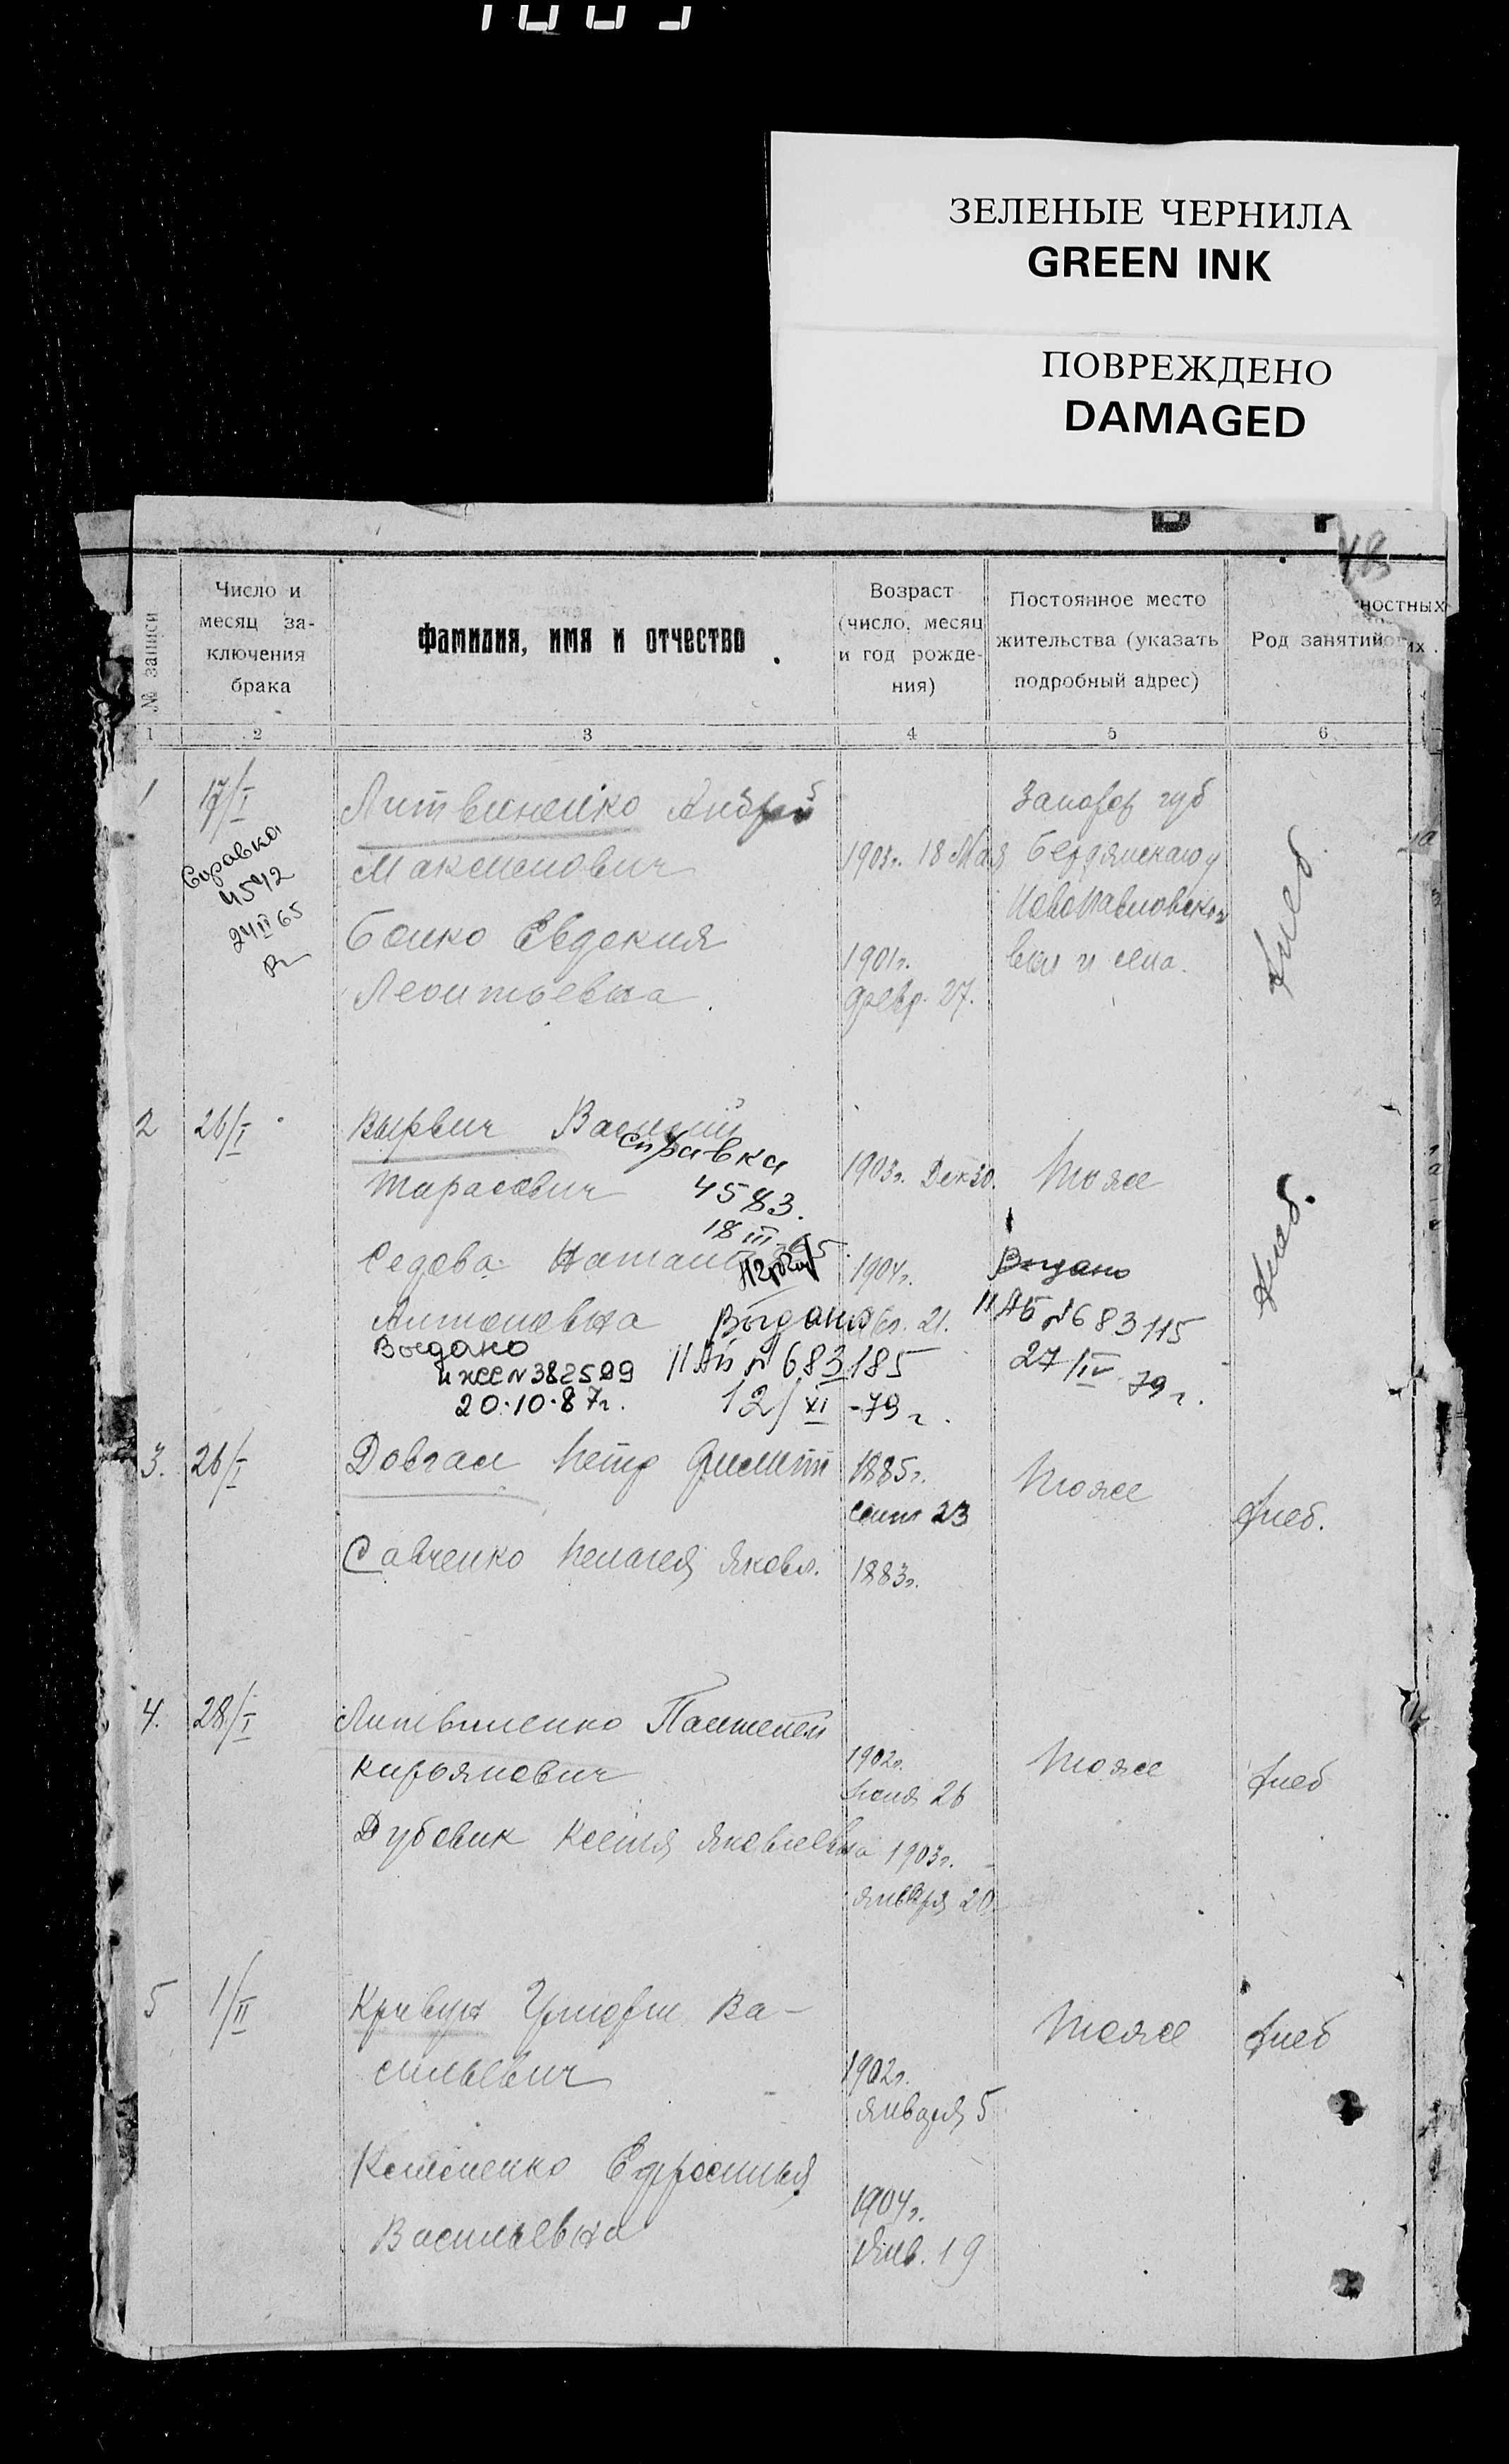 ЗЕЛЕНЫЕ ЧЕРНИЛА
GREEN INK
ПОВРЕЖДЕНО
DAMAGED
№ записи
Число и месяц за-
ключения
брака
Фамилия, имя и отчество
Возраст
(число, месяц
и год рожде-
ния)
Постоянное место
жительства (указать
подробный адрес)
Род занятий
ностных
их
1 2 3 4 5 6
1 17/I Литвиненко Андрей
Максимович
1903г. 18 Мая
Запорож губ
Бердянского у
Новопавловской
вол и села.
Хлеб
Справка
4542
24 II 65
Бойко Евдокия
Леонтьевна
1901г.
февр. 27.
2 26/I Вырвич Василий
Тарасович
1903г. Дек 30.
Тоже
Хлеб.
Справка
4583.
18 III-65
Седова
Антоновна
1904г.
21.
Выдано
II АБ № 683115
27/IV 79 г.
Выдано
II АБ № 683185
12/XI-79 г.
Выдано
№ 382599
20.10.87г.
3. 26/I Довгал Петр Филипп
1885г.
Сент 23
Тоже
Хлеб.
Савченко Пелагея Яковл.
1883г.
4. 28/I Литвиненко Пантелей
Кирьянович
1902г.
26
Тоже
Хлеб
Дубовик Ксения Яковлевна
1903г.
января 20
5 1/II Кривун Григорий Ва-
сильевич
1902г.
января 5
Тоже
Хлеб
Ефросинья
Васильевна
1904г.
Янв. 19